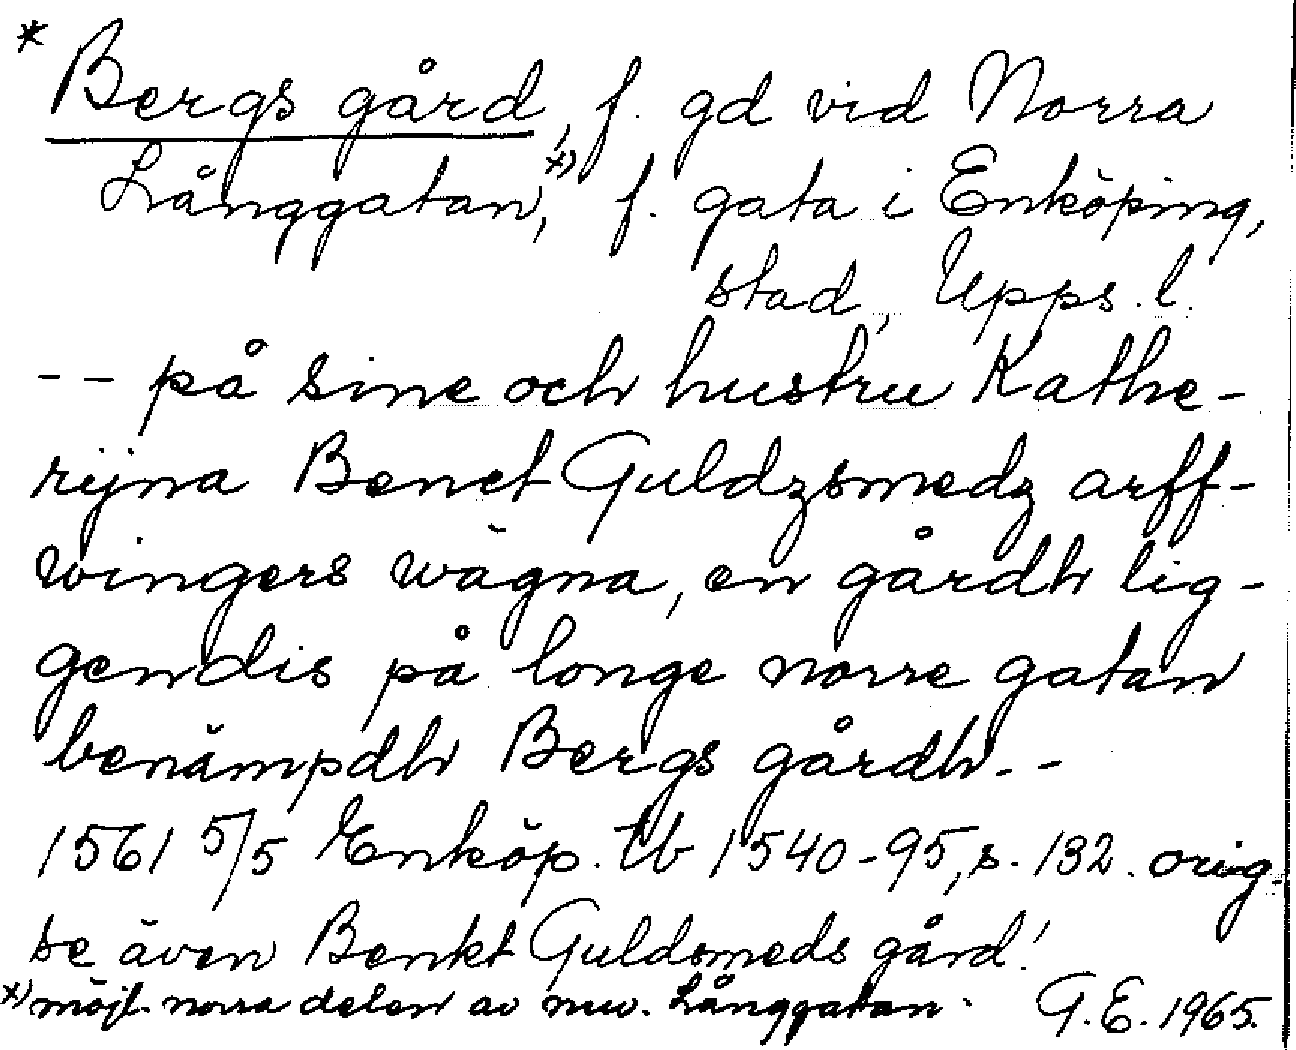 * Bergs gård, f. gd vid Norra
Långgatan,*) f. gata i Enköping,
stad, Upps. l.
-- på sine och hustru Kathe-
rijna Benct Guldzsmedz arff-
wingers wägna, en gårdh lig-
gendis på longe norre gatan
benämpdh Bergs gårdh --
1561 5/5 Enköp. tb 1540-95, s. 132. orig.
se även Benkt Guldsmeds gård!
*) möjl. norra delen av nuv. Långgatan.
G.E. 1965.